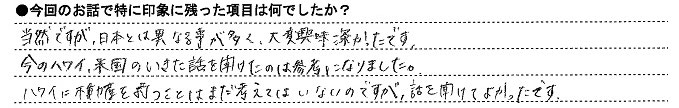 ●今回のお話で特に印象に残った項目は何でしたか？
当然ですが、日本とは異なる事が多く、大変興味深かったです。
今のハワイ、米国のいきた話を聞けたのは参考になりました。
ハワイに不動産を買うことはまだ考えてはいないのですが、話を聞けてよかったです。